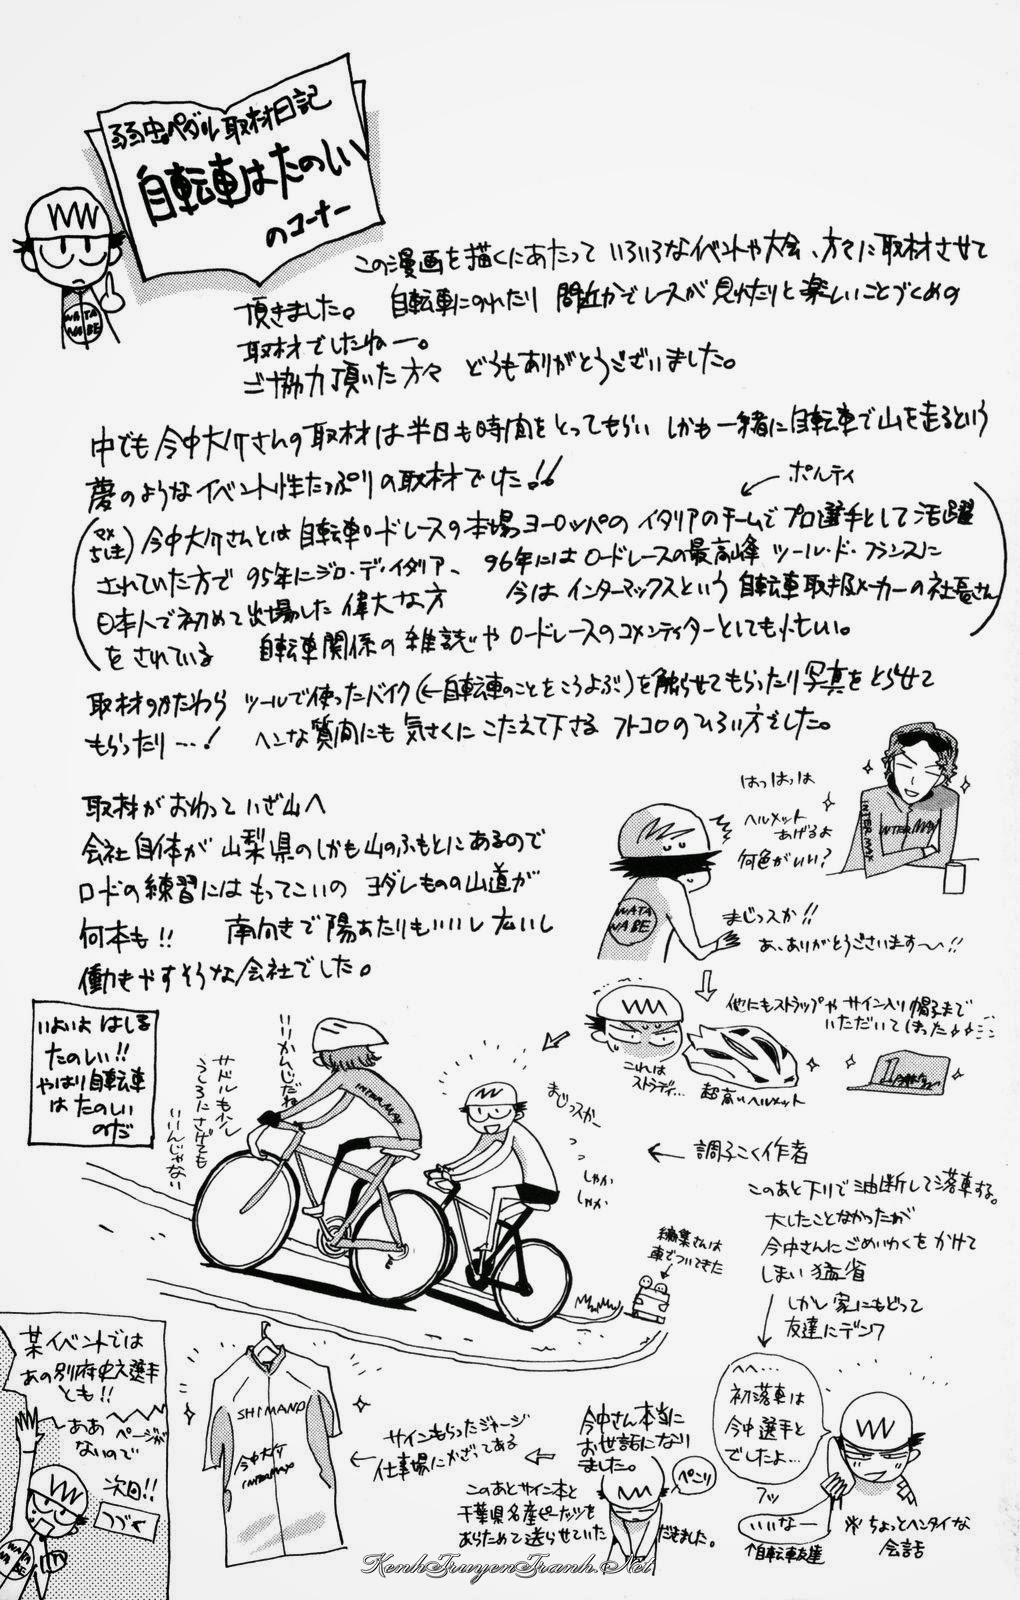 弱虫ペダル 取材日記
自転車はたのしい
のコーナー
WATA
NABE
この漫画を描くにあたって いろいろなイベントや大会、方々に取材させて
頂きました。 自転車にのれたり 間近かでレースが見れたりと楽しいことづくめの
取材でしたねー。
ご協力頂いた方々 どうもありがとうございました。
中でも今中大介さんの取材は半日も時間をとってもらい しかも一緒に自転車で山を走るという
夢のようなイベント性たっぷりの取材でした!!
ポルティ
今中大介さんとは自転車ロードレースの本場ヨーロッパのイタリアのチームでプロ選手として活躍
されていた方で 95年にジロ・デ・イタリア、 96年にはロードレースの最高峰 ツール・ド・フランスに
日本人で初めて出場した偉大な方 今はインターマックスという自転車取扱メーカーの社長さん
をされている 自転車関係の雑誌やロードレースのコメンテイターとしても忙しい。
取材のかたわら ツールで使ったバイク(←自転車のことをこうよぶ)を触らせてもらったり写真をとらせて
もらったり…! ヘンな質問にも気さくにこたえて下さる フトコロのひろい方でした。
取材がおわって いざ山へ
会社自体が 山梨県のしかも山のふもとにあるので
ロードの練習にはもってこいの ヨダレものの山道が
何本も!! 南向きで陽あたりもいいし 広いし
働きやすそうな会社でした。
はっはっは
ヘルメット
あげるよ
何色がいい?
INTERMAX
INTERMAX
WATA
NABE
まじっスか!!
あ、ありがとうございます〜!!
他にもストラップや サイン入り帽子まで
いただいてしまった
これは
ストラディ…
超高いヘルメット
いよいよ はしる
たのしい!!
やはり自転車
は たのしい
のだ
いいかんじだね
サドルも少し
うしろにさげても
いいんじゃない
INTERMAX
まじっスかー
しゃか
しゃか
← 調子こく作者
編集さんは
車でついてきた
このあと下りで油断して落車する。
大したことなかったが
今中さんにごめいわくをかけて
しまい猛省
しかし 家にもどって
友達にデンワ
へへ…
初落車は
今中選手と
でしたよ…
フッ
いいなー
↑自転車友達
※ちょっとヘンタイな
会話
今中さん本当に
お世話になり
ました。
ぺこり
このあとサイン本と
千葉県名産ピーナッツを
あらためて送らせていた
だきました。
サインもらったジャージ
仕事場にかざってある
SHIMANO
今中大介
INTERMAX
某イベントでは
あの別府史之選手
とも!!
ああ ページが
ないので
次回!!
つづく
WATA
NABE
KenhTruyenTranh.Net